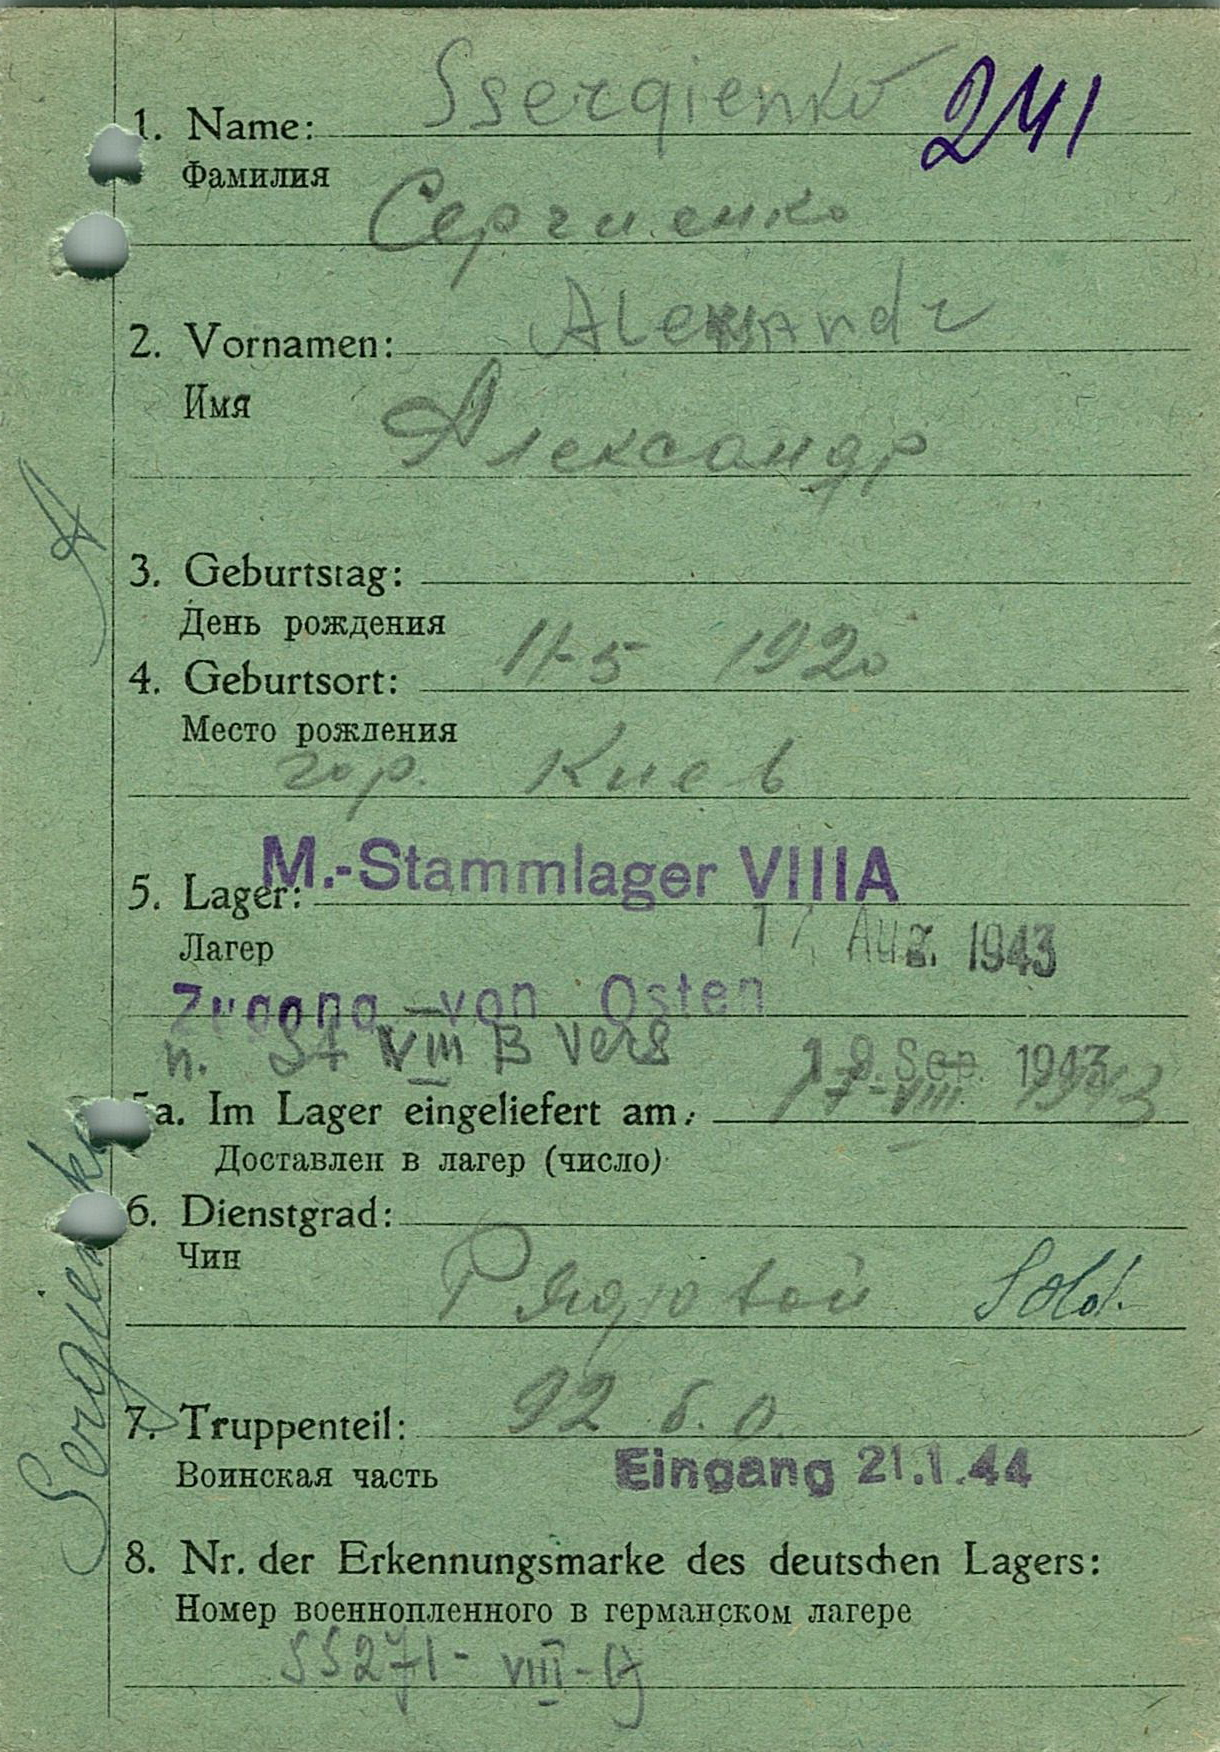 Ssergienko 241
1. Name:
Фамилия
Сергиенко
Alexsandr
2. Vornamen:
Имя
Александр
A
3. Geburtstag:
День рождения
11-5 1920
4. Geburtsort:
Место рождения
гор. Киев
M.-Stammlager VIIIA
5. Lager:
17. Aug. 1943
Лагер
Zugang von Osten
n. St VIII B Vers 18. Sep. 1943
5a. Im Lager eingeliefert am: 17-VIII. 1943
Доставлен в лагер (число)
6. Dienstgrad:
Чин
Рядовой Sold.
Sergienko
7. Truppenteil: 92 б. о.
Воинская часть Eingang 21.1.44
8. Nr. der Erkennungsmarke des deutschen Lagers:
Номер военнопленного в германском лагере
55271- VIII-